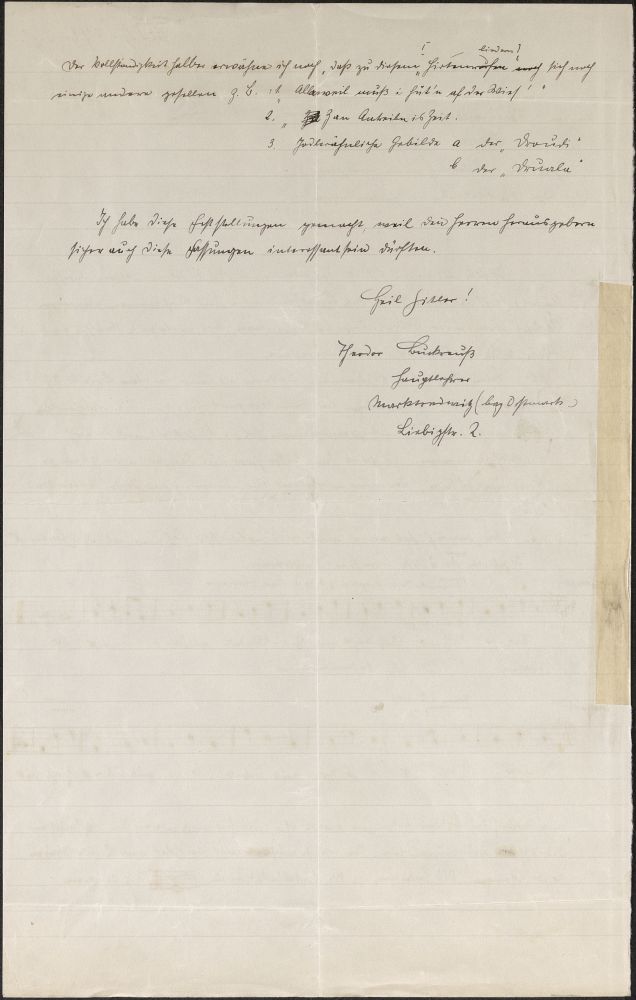 ! liedern!
Der Vollständigkeit halber erwähne ich noch, daß zu diesem „Hirtenrufen" noch sich noch
einige andere gesellen z. B. : 1. „Allerweil muß i hüt'n af der Wies'!"
2. „ Zan Antreiln is Zeit.
3. Jodlerähnliche Gebilde a der „Droudi"
b der „Druala"
Ich habe diese Feststellungen gemacht, weil den Herren Herausgebern
sicher auch diese Fassungen interessant sein dürften.
Heil Hitler!
Theodor Buckreuß
Hauptlehrer
Marktredwitz (bay Ostmark)
Liebigstr. 2.